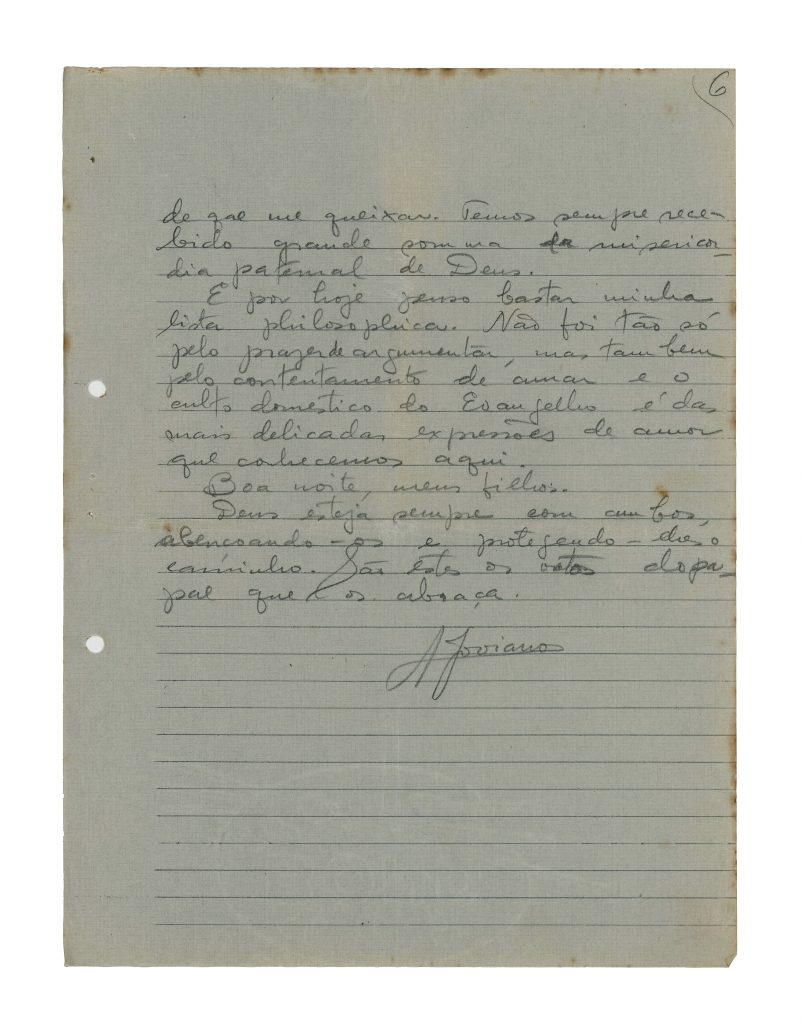 6
de que me queixar. Temos sempre rece-
bido grande somma da misericor-
dia paternal de Deus.
E por hoje penso bastar minha
lista philosophica. Não foi tão só
pelo prazer de argumentar, mas tambem
pelo contentamento de amar e o
culto domestico do Evangelho é das
mais delicadas expressões de amor
que conhecemos aqui.
Boa noite, meus filhos.
Deus esteja sempre com ambos,
abençoando-os e protegendo-lhes o
caminho. São estes os votos do pa-
pae que os abraça.
A Joviano